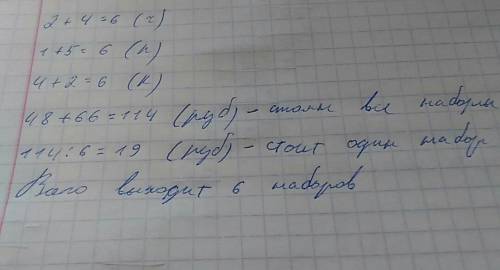 2 + 4 = 6 (г)
1 + 5 = 6 (п)
4 + 2 = 6 (к)
48 + 66 = 114 (руб) - стоят все наборы
114 : 6 = 19 (руб) - стоит один набор
Всего выходит 6 наборов